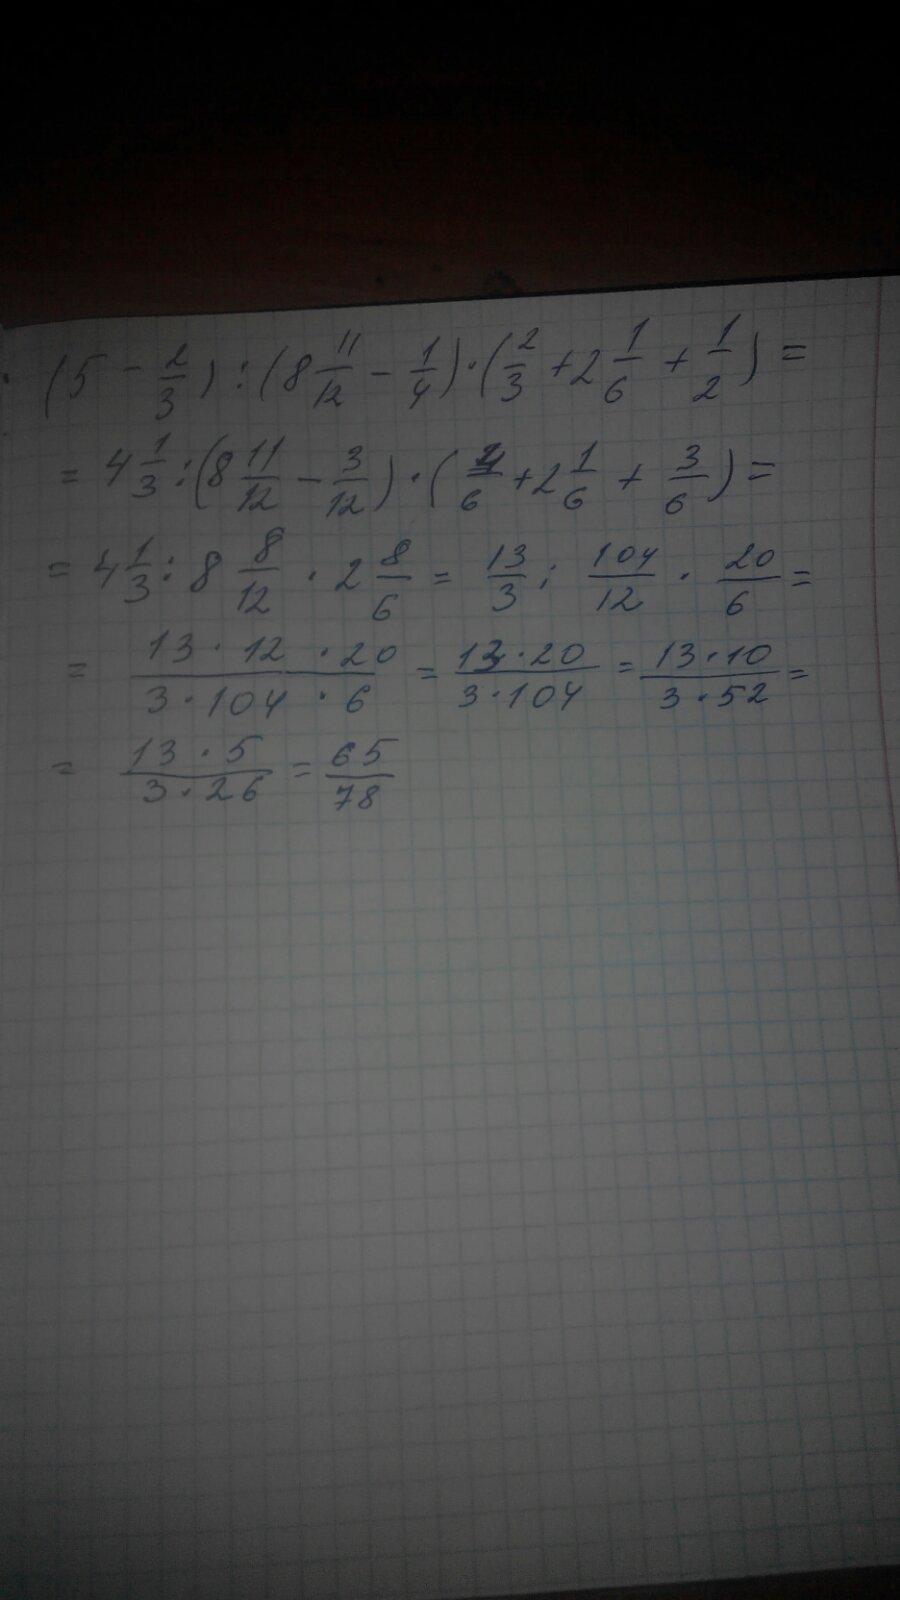 (5 - 2/3) : (8 11/12 - 1/4) · (2/3 + 2 1/6 + 1/2) =
= 4 1/3 : (8 11/12 - 3/12) · (4/6 + 2 1/6 + 3/6) =
= 4 1/3 : 8 8/12 · 2 8/6 = 13/3 : 104/12 · 20/6 =
= 13 · 12 · 20 / 3 · 104 · 6 = 13 · 20 / 3 · 104 = 13 · 10 / 3 · 52 =
= 13 · 5 / 3 · 26 = 65/78